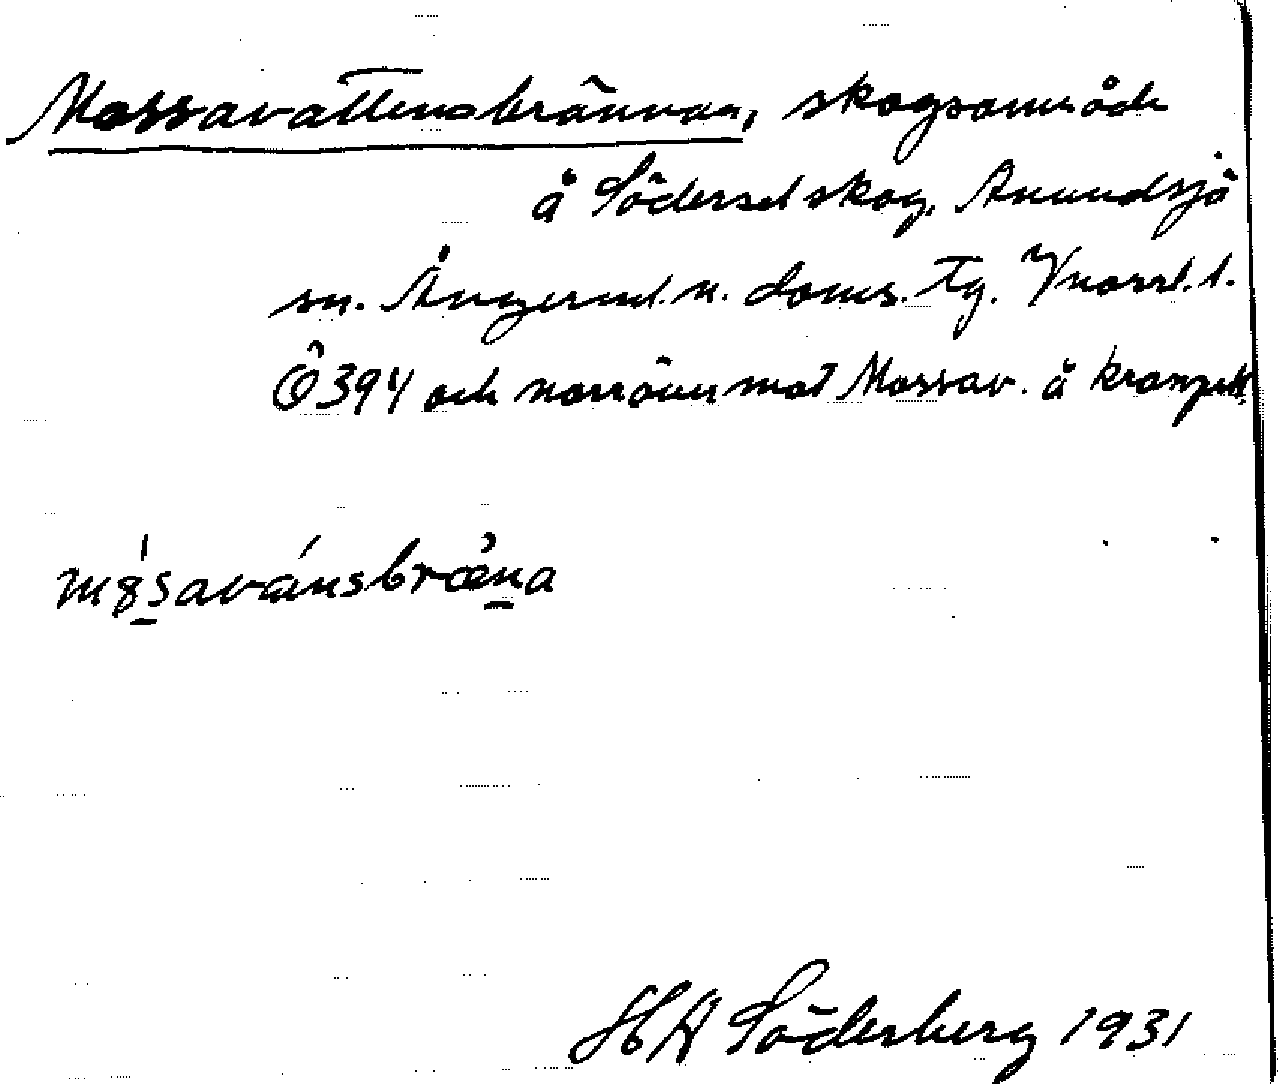 Mossavattensbrännan, skogsområde
å Södersel skog, Anundsjö
sn. Ångerml. n. doms. tg. Vnorrl. l.
Ö 394 och norröver mot Mossav. å
mɞ́savánsbræ̀na
H A Söderberg 1931